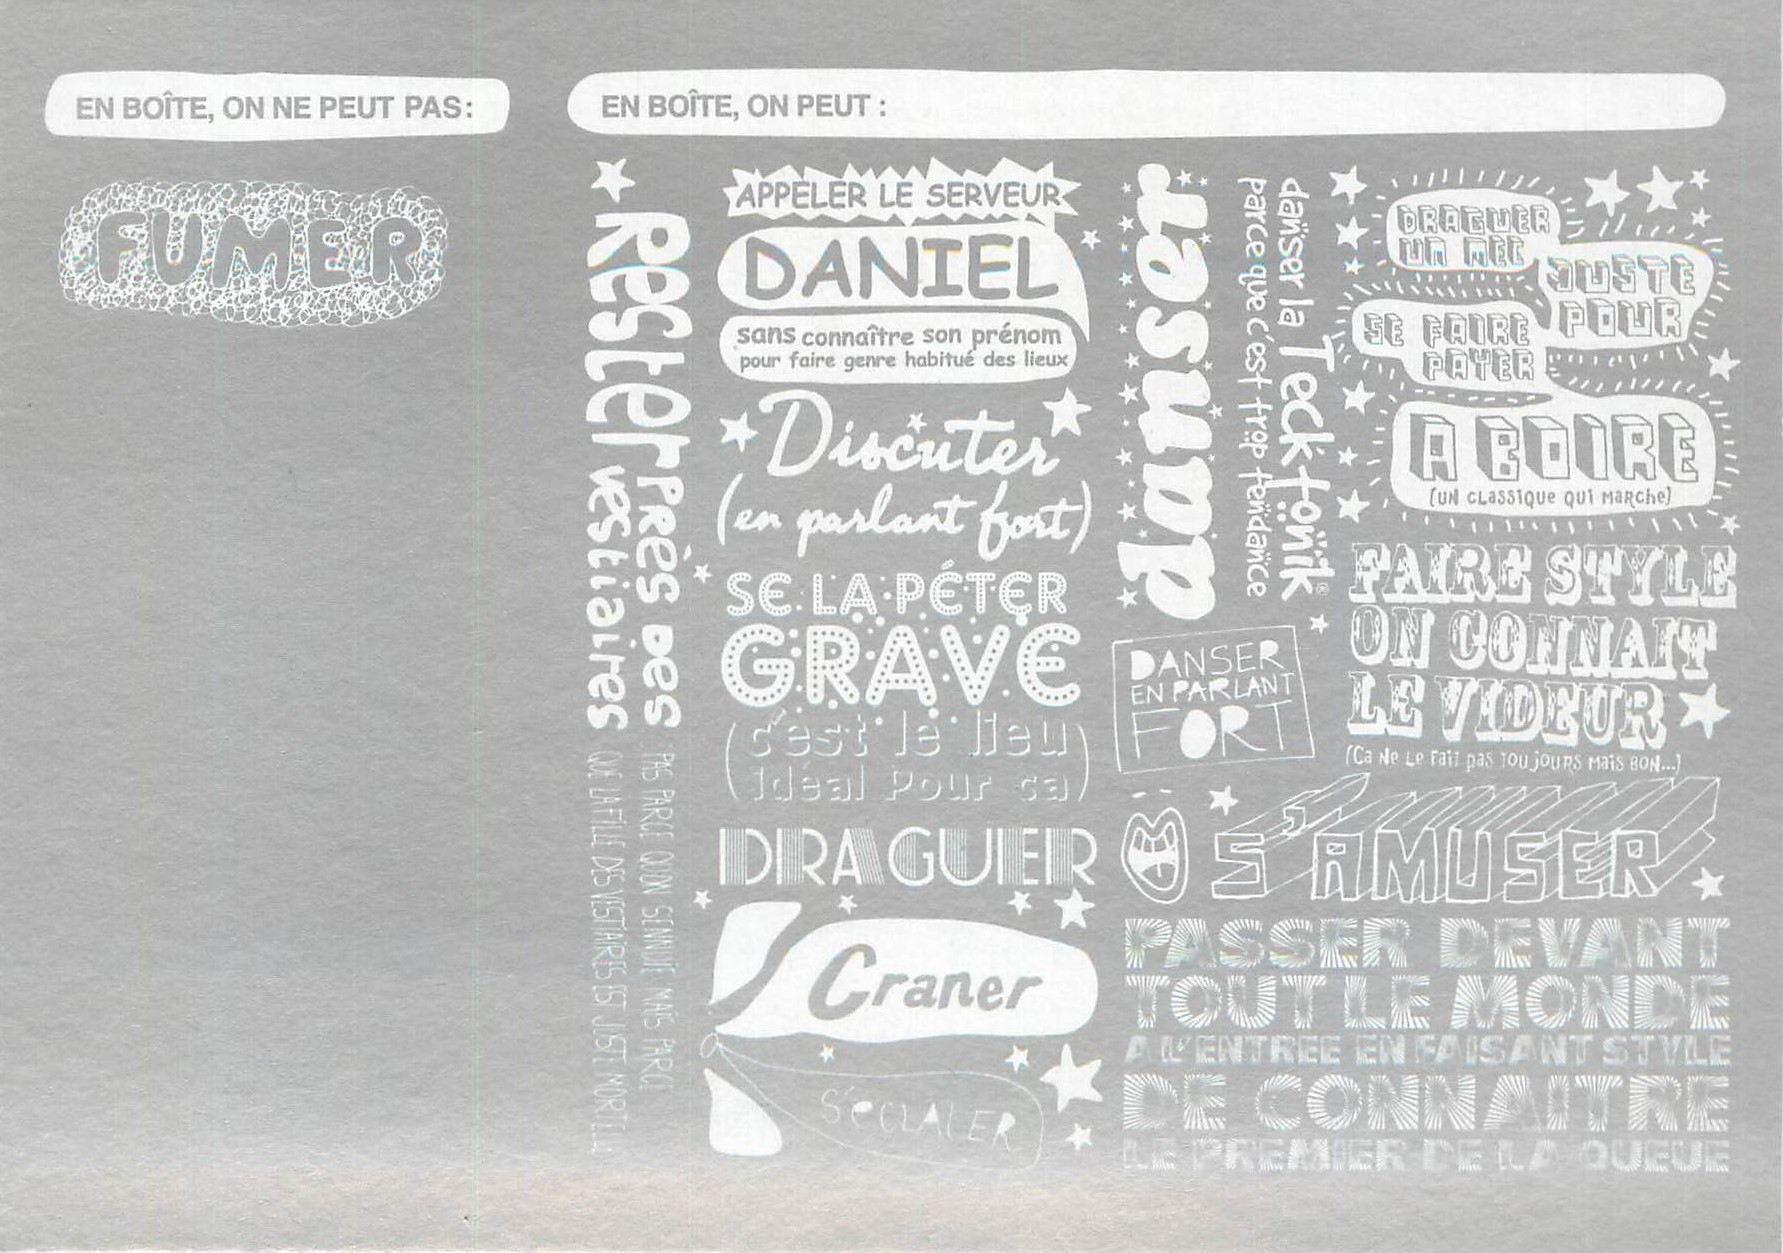 EN BOÎTE, ON NE PEUT PAS:
FUMER
EN BOÎTE, ON PEUT :
Rester
PRÈS DES
vestiaires
PAS PARCE QU'ON S'ENNUIE MAIS PARCE
QUE LA FILLE DES VESTIAIRES EST JUST MORTELLE
APPELER LE SERVEUR
DANIEL
sans connaître son prénom
pour faire genre habitué des lieux
Discuter
(en parlant fort)
SE LA PÉTER
GRAVE
(c'est le lieu
idéal Pour ça)
DRAGUER
Craner
S'ÉCLATER
danser
danser la Teck-tonik®
parce que c'est trop tendance
DANSER
EN PARLANT
FORT
DRAGUER
UN MEC
JUSTE
POUR
SE FAIRE
PAYER
A BOIRE
(UN CLASSIQUE QUI MARCHE)
FAIRE STYLE
ON CONNAIT
LE VIDEUR
(Ca Ne Le Fait pas TOUJOURS MaiS BON...)
S'AMUSER
PASSER DEVANT
TOUT LE MONDE
A L'ENTREE EN FAISANT STYLE
DE CONNAITRE
LE PREMIER DE LA QUEUE